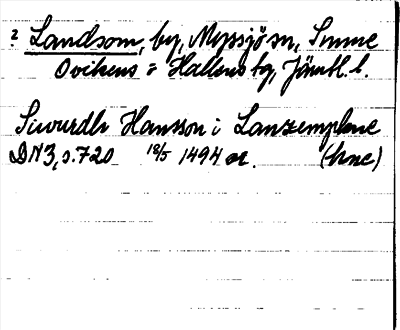 ? Landsom, by, Myssjö sn, Sunne
Ovikens o Hallens tg, Jämtl. l.
Siwurdh Hansson i Lanzemplene
DN3, s. 720 18/5 1494 or. (hne)